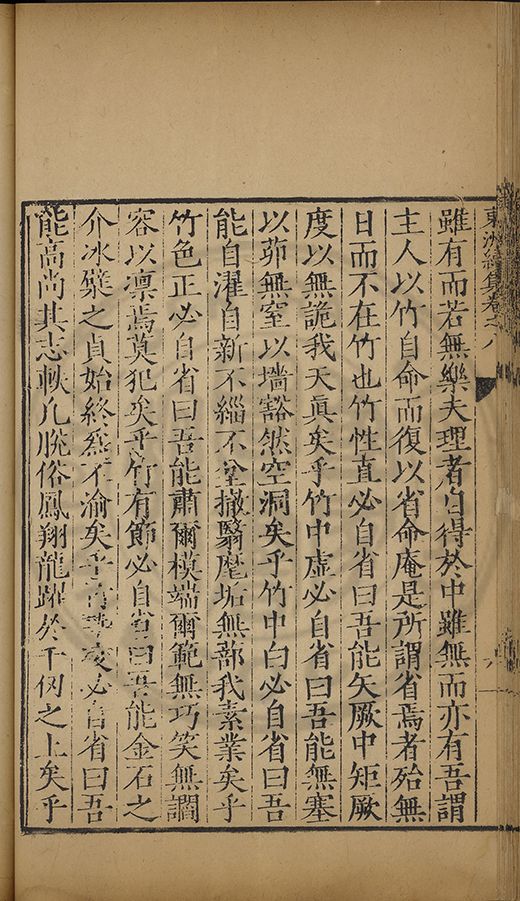 東洲續集卷之八
雖有而若無樂夫理者自得於中雖無而亦有吾謂
主人以竹自命而復以省命庵是所謂省焉者殆無
日而不在竹也竹性直必自省曰吾能矢厥中矩厥
度以無詭我天眞矣乎竹中虛必自省曰吾能無塞
以茆無窒以墻豁然空洞矣乎竹中白必自省曰吾
能自濯自新不緇不坌撤翳麾垢無鄙我素業矣乎
竹色正必自省曰吾能肅爾模端爾範無巧笑無讇
容以凛焉莫犯矣乎竹有節必自省曰吾能金石之
介冰檗之貞始終焉不渝矣乎必自省曰吾
能高尚其志軼凡脫俗鳳翔龍躍於千仞之上矣乎